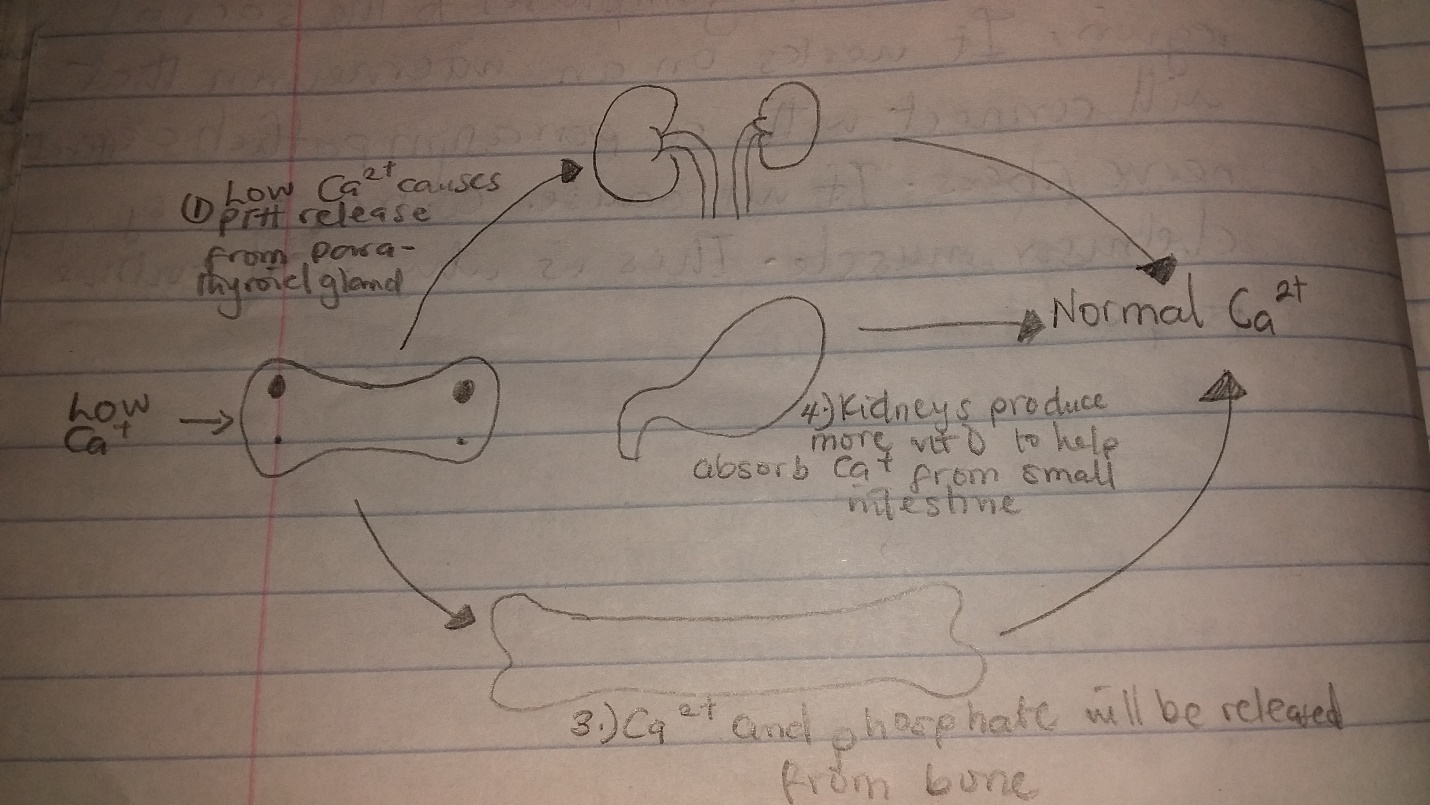 Low Ca²⁺ causes
① PTH release
from para-
thyroid gland
Normal Ca²⁺
Low
Ca⁺
4.) Kidneys produce
more vit D to help
absorb Ca⁺ from small
intestine
3.) Ca²⁺ and phosphate will be released
from bone